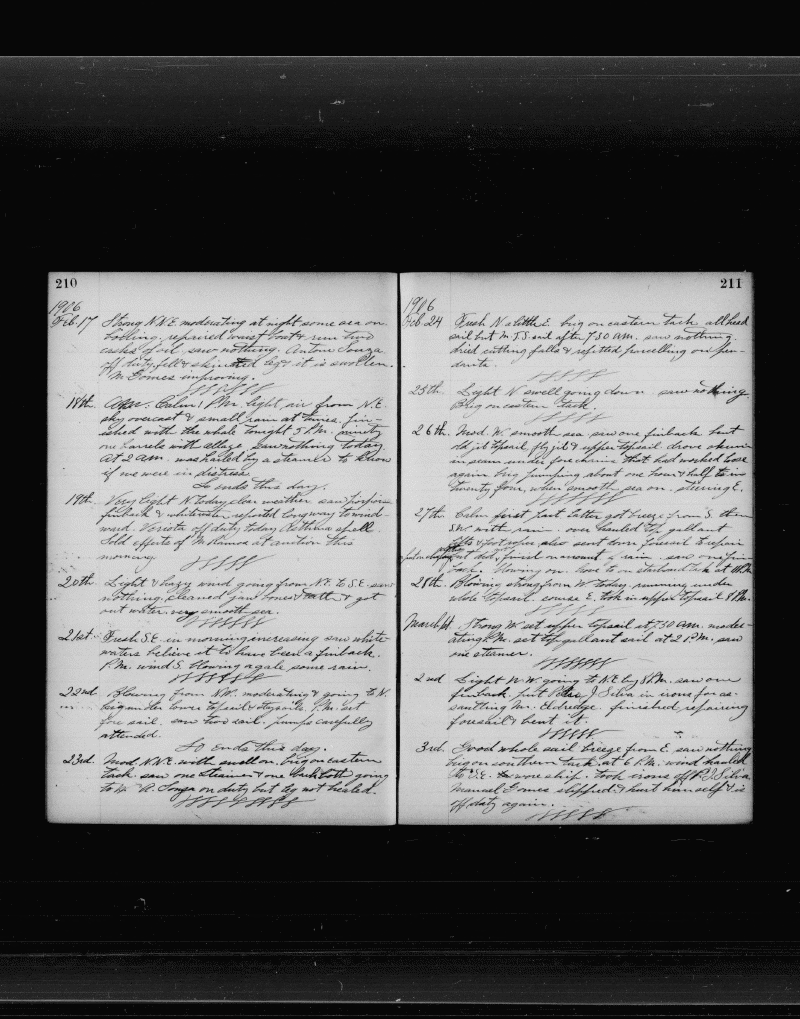 210
1906
Feb. 17 Strong N.N.E. moderating at night some sea on.
boiling. repaired waist boat & run two
casks of oil. saw nothing. Antone Souza
off duty, fell & skinned leg & it is swollen.
M Gomes improving.
18th. Calm. 1 P.M. light air from N.E.
sky overcast & small rain at times. fin-
ished with the whale tonight 5 P.M. ninety
one barrels with ullage. Saw nothing today.
At 2 A.M. was hailed by a steamer to know
if we were in distress.
So ends this day.
19th. Very light N. today clear weather. saw porpoise
finback & whitewater reported long way to wind
ward. off duty today Asthma spell
Sold effects of M Ramos at auction this
morning.
20th. Light & hazy wind going from N.E. to S.E. saw
nothing. cleaned jaw bones & teeth & got
out water. very smooth sea.
21st. Fresh S.E. in morning, increasing. saw white
waters believe it to have been a finback.
P.M. wind S. blowing a gale some rain.
22nd Blowing from N.W. moderating & going to N.
brig under lower topsail & staysails. P.M. set
fore sail. saw two sail. jumps carefully
attended.
So Ends this day.
23rd. Mod. N.N.E. with swell on. brig on eastern
tack. saw one steamer & one going
to W. A. Souza on duty but leg not healed.
211
1906
Feb. 24 Fresh N a little E. brig on eastern tack, all head
sail but M.T.S. and after 7 30 A.M. saw nothing.
dried cutting falls & refitted parcelling on pen-
dants.
25th. Light N swell going down. saw nothing
Brig on eastern tack.
26th. Mod. W. smooth sea. saw one finback. bent
old jib topsail, fly jib & upper topsail. drove oakum
in seam under forechains that had worked lose
again. brig pumping about one hour & half to in
twenty four, when smooth sea on. steering E.
27th. Calm first part latter got breeze from S. then
S.W. with rain. over hauled top gallant
also sent down foresail to repair
finish noment & rain. saw one fin-
back. blowing on. hove to on starboard tack at
28th. Blowing strong from W. today, running under
whole topsail. course E. took in upper topsail 8 P.M.
March 1st. Strong W. set upper topsail at 7.30 A.M. moder-
ating P.M. set top gallant sail at 2 P.M. saw
one steamer.
2nd Light W.W. going to N.E. by 8 P.M. saw one
finback. put J. Silva in irons for as-
saulting Mr. Eldredge. finished repairing
foresail & bent it.
3rd. Good whole sail breeze from E. saw nothing
brig on southern tack. at 6 P.M. wind hauled
to S.E. wore ship. took irons off P. J. Silva.
Manuel Gomes slipped & hurt himself & is
off duty again.